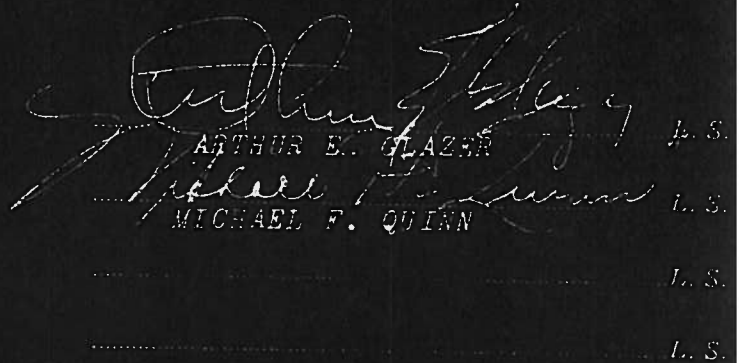 Arthur E Glazer
ARTHUR E. GLAZER L. S.
Michael F. Quinn
MICHAEL F. QUINN L. S.
L. S.
L. S.